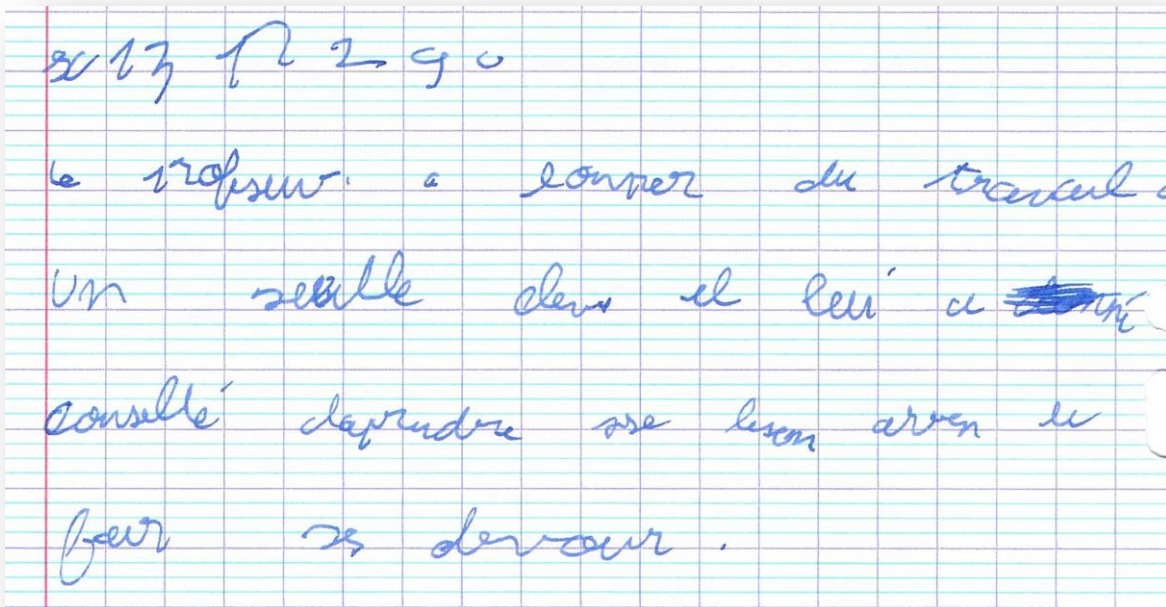 x 13 p 290
le profseur. a conner du travail a
un seulle eleve il lui a
consellé daprendre sse leson aven le
fair ses devoir.